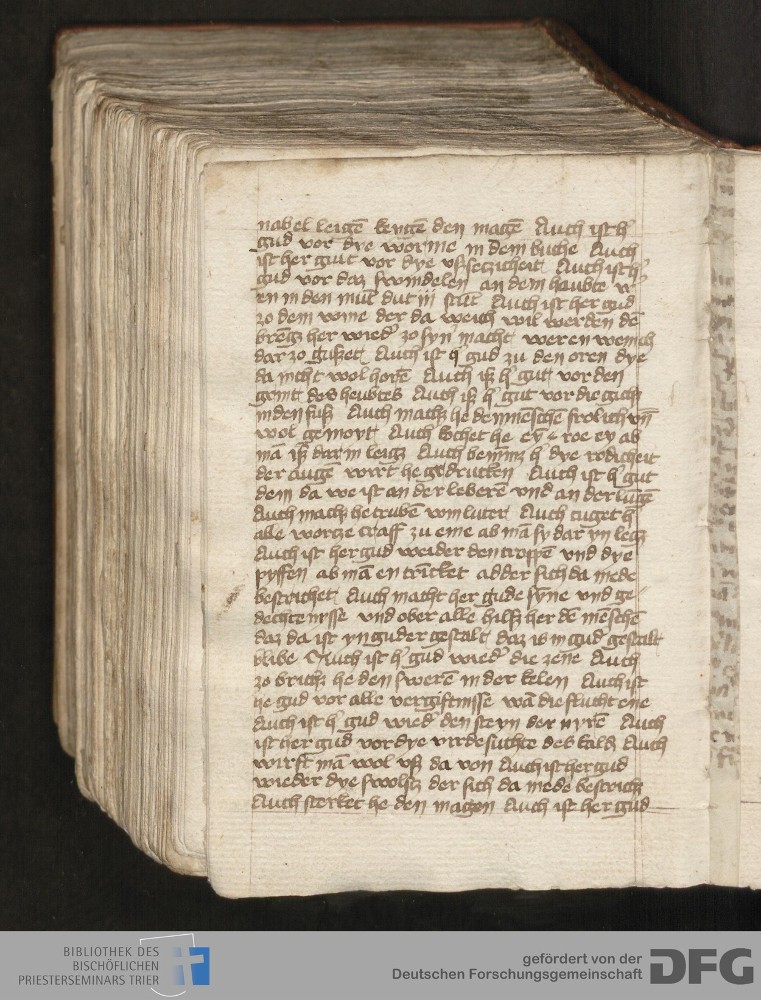 nabel leigē kengē den magē Auch ist h'
gud vor dye worme in dem buche Auch
ist her guit vor dye vßseczicheit Auch ist h'
gud vor daz swindelen an dem heubte
en in den mūt dut iij stūt Auch ist her gud
zo dem wine der da weich wil werden dē
brengz her wied' zo syn' macht weren wenich
dar zo gußet Auch ist gud zu den oren dye
da nicht wol horē Auch iß h' gutt vor den
grint des heubtes Auch iß h' gut vor die gicht
in den fuß Auch machz he de mīnēschē frolich vn̄
wol gemoyt Auch he eȳ roe ey ab
mā iß dar in leigz Auch benīmz h' dye rodicheit
der augē wirt he gedrucken Auch ist h' gut
dem da we ist an der leberē vnd an der lūgē
Auch machz he trubē win luter Auch tuget h'
alle worcze craff zu eme ab mā sy dar yn legz
Auch ist her gud weider den troppē vnd dye
pyffen ab mā en trīcket adder sich da mede
bestrichet Auch macht her gude syne vnd ge-
dechtenysse vnd ober alle hilfz her dē mēschē
daz da ist yn guder gestalt daz is in gud' gestalt
blibe Auch ist h' gud wied' die zene Auch
zo brichz he den swerē in der kelen Auch ist
he gud vor alle vergiftnisse wā die flucht ene
Auch ist h' gud wied' den steyn der nyrē Auch
ist her gud vor dye vrrdesuchte des kaldz Auch
wirft mā wol vß da von Auch ist her gud
wieder dye swolstz der sich da mede bestrichz
Auch sterket he den magen Auch ist her gud
BIBLIOTHEK DES
BISCHÖFLICHEN
PRIESTERSEMINARS TRIER
gefördert von der
Deutschen Forschungsgemeinschaft
DFG